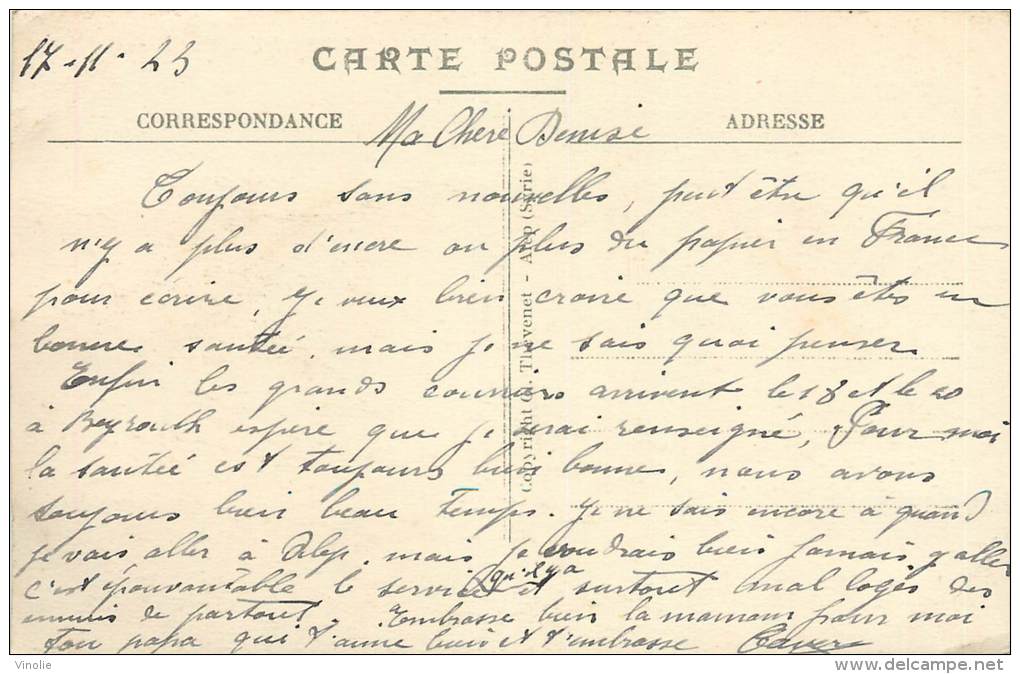 17-11-23
CARTE POSTALE
CORRESPONDANCE
ADRESSE
Ma Chere Denise
Toujours sans nouvelles, peut être qu'il
n'y a plus d'encre ou plus du papier en France
pour ecrire, je veux bien croire que vous êtes en
bonne santée, mais je ne sais quoi penser
Enfin les grands courriers arrivent le 18 et le 20
à Beyrouth espère que je serai renseigné, Pour moi
la santée est toujours bien bonne, nous avons
toujours bien beau temps. Je ne sais encore à quand
je vais aller à Alep, mais je voudrais bien jamais y aller
c'est épouvantable le service qu'il y a et surtout mal logés des
ennuis de partout. Embrasse bien la maman pour moi
Ton papa qui t'aime bien et t'embrasse
Copyright G. Thévenet - Alep (Syrie)
Vinolie
delcampe.net